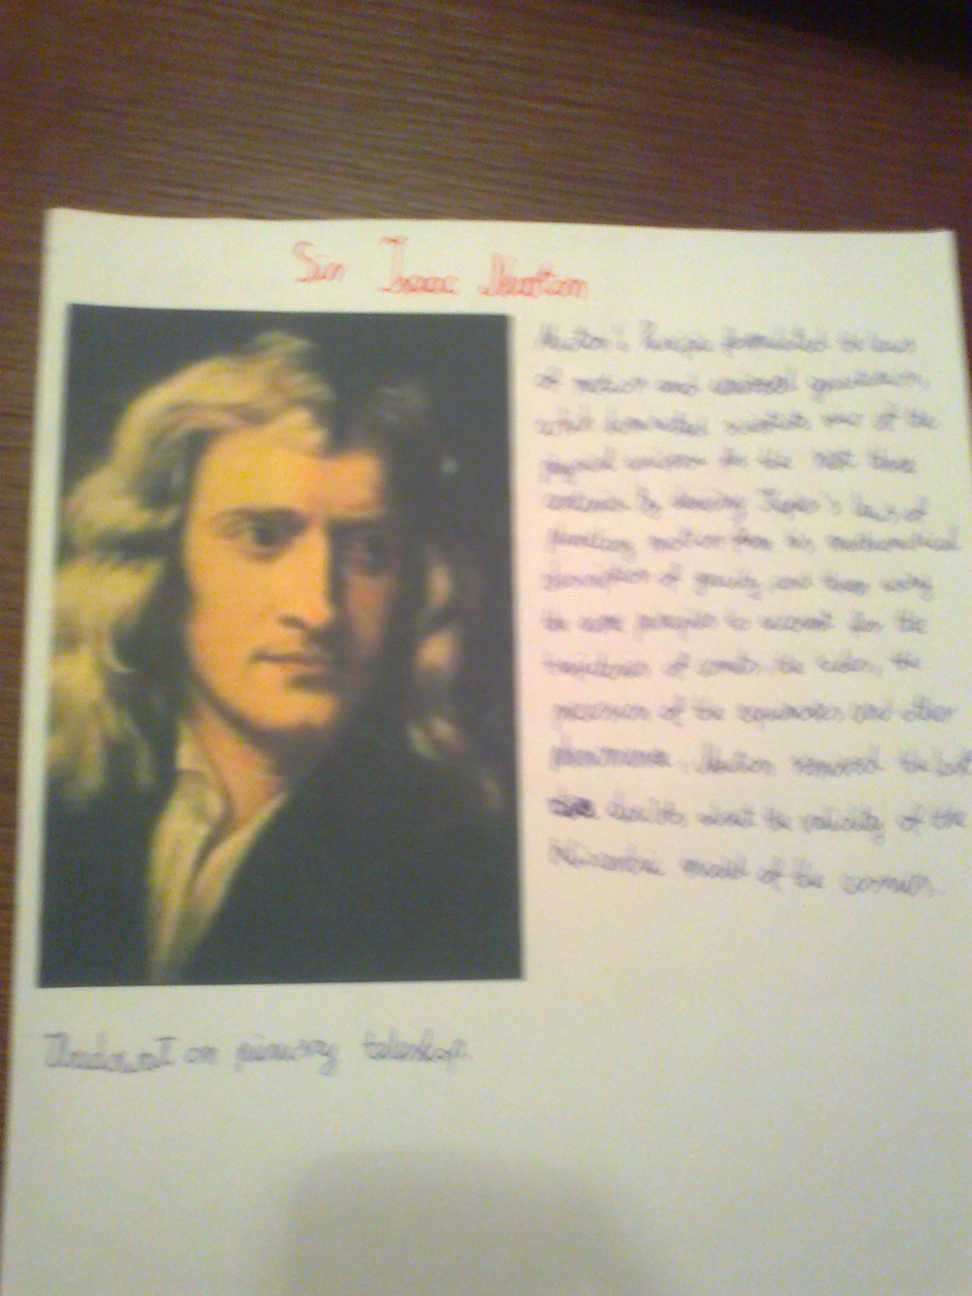 Sir Isaac Newton
Newton's Principia formulated the laws
of motion and universal gravitation,
which dominated scientists view of the
physical universe for the next three
centuries. By deriving Kepler's laws of
planetary motion from his mathematical
description of gravity, and then using
the same principles to account for the
trajectories of comets, the tides, the
precession of the equinoxes and other
phenomena, Newton removed the last
doubts about the validity of the
heliocentric model of the cosmos.
Zbudował on pierwszy teleskop.